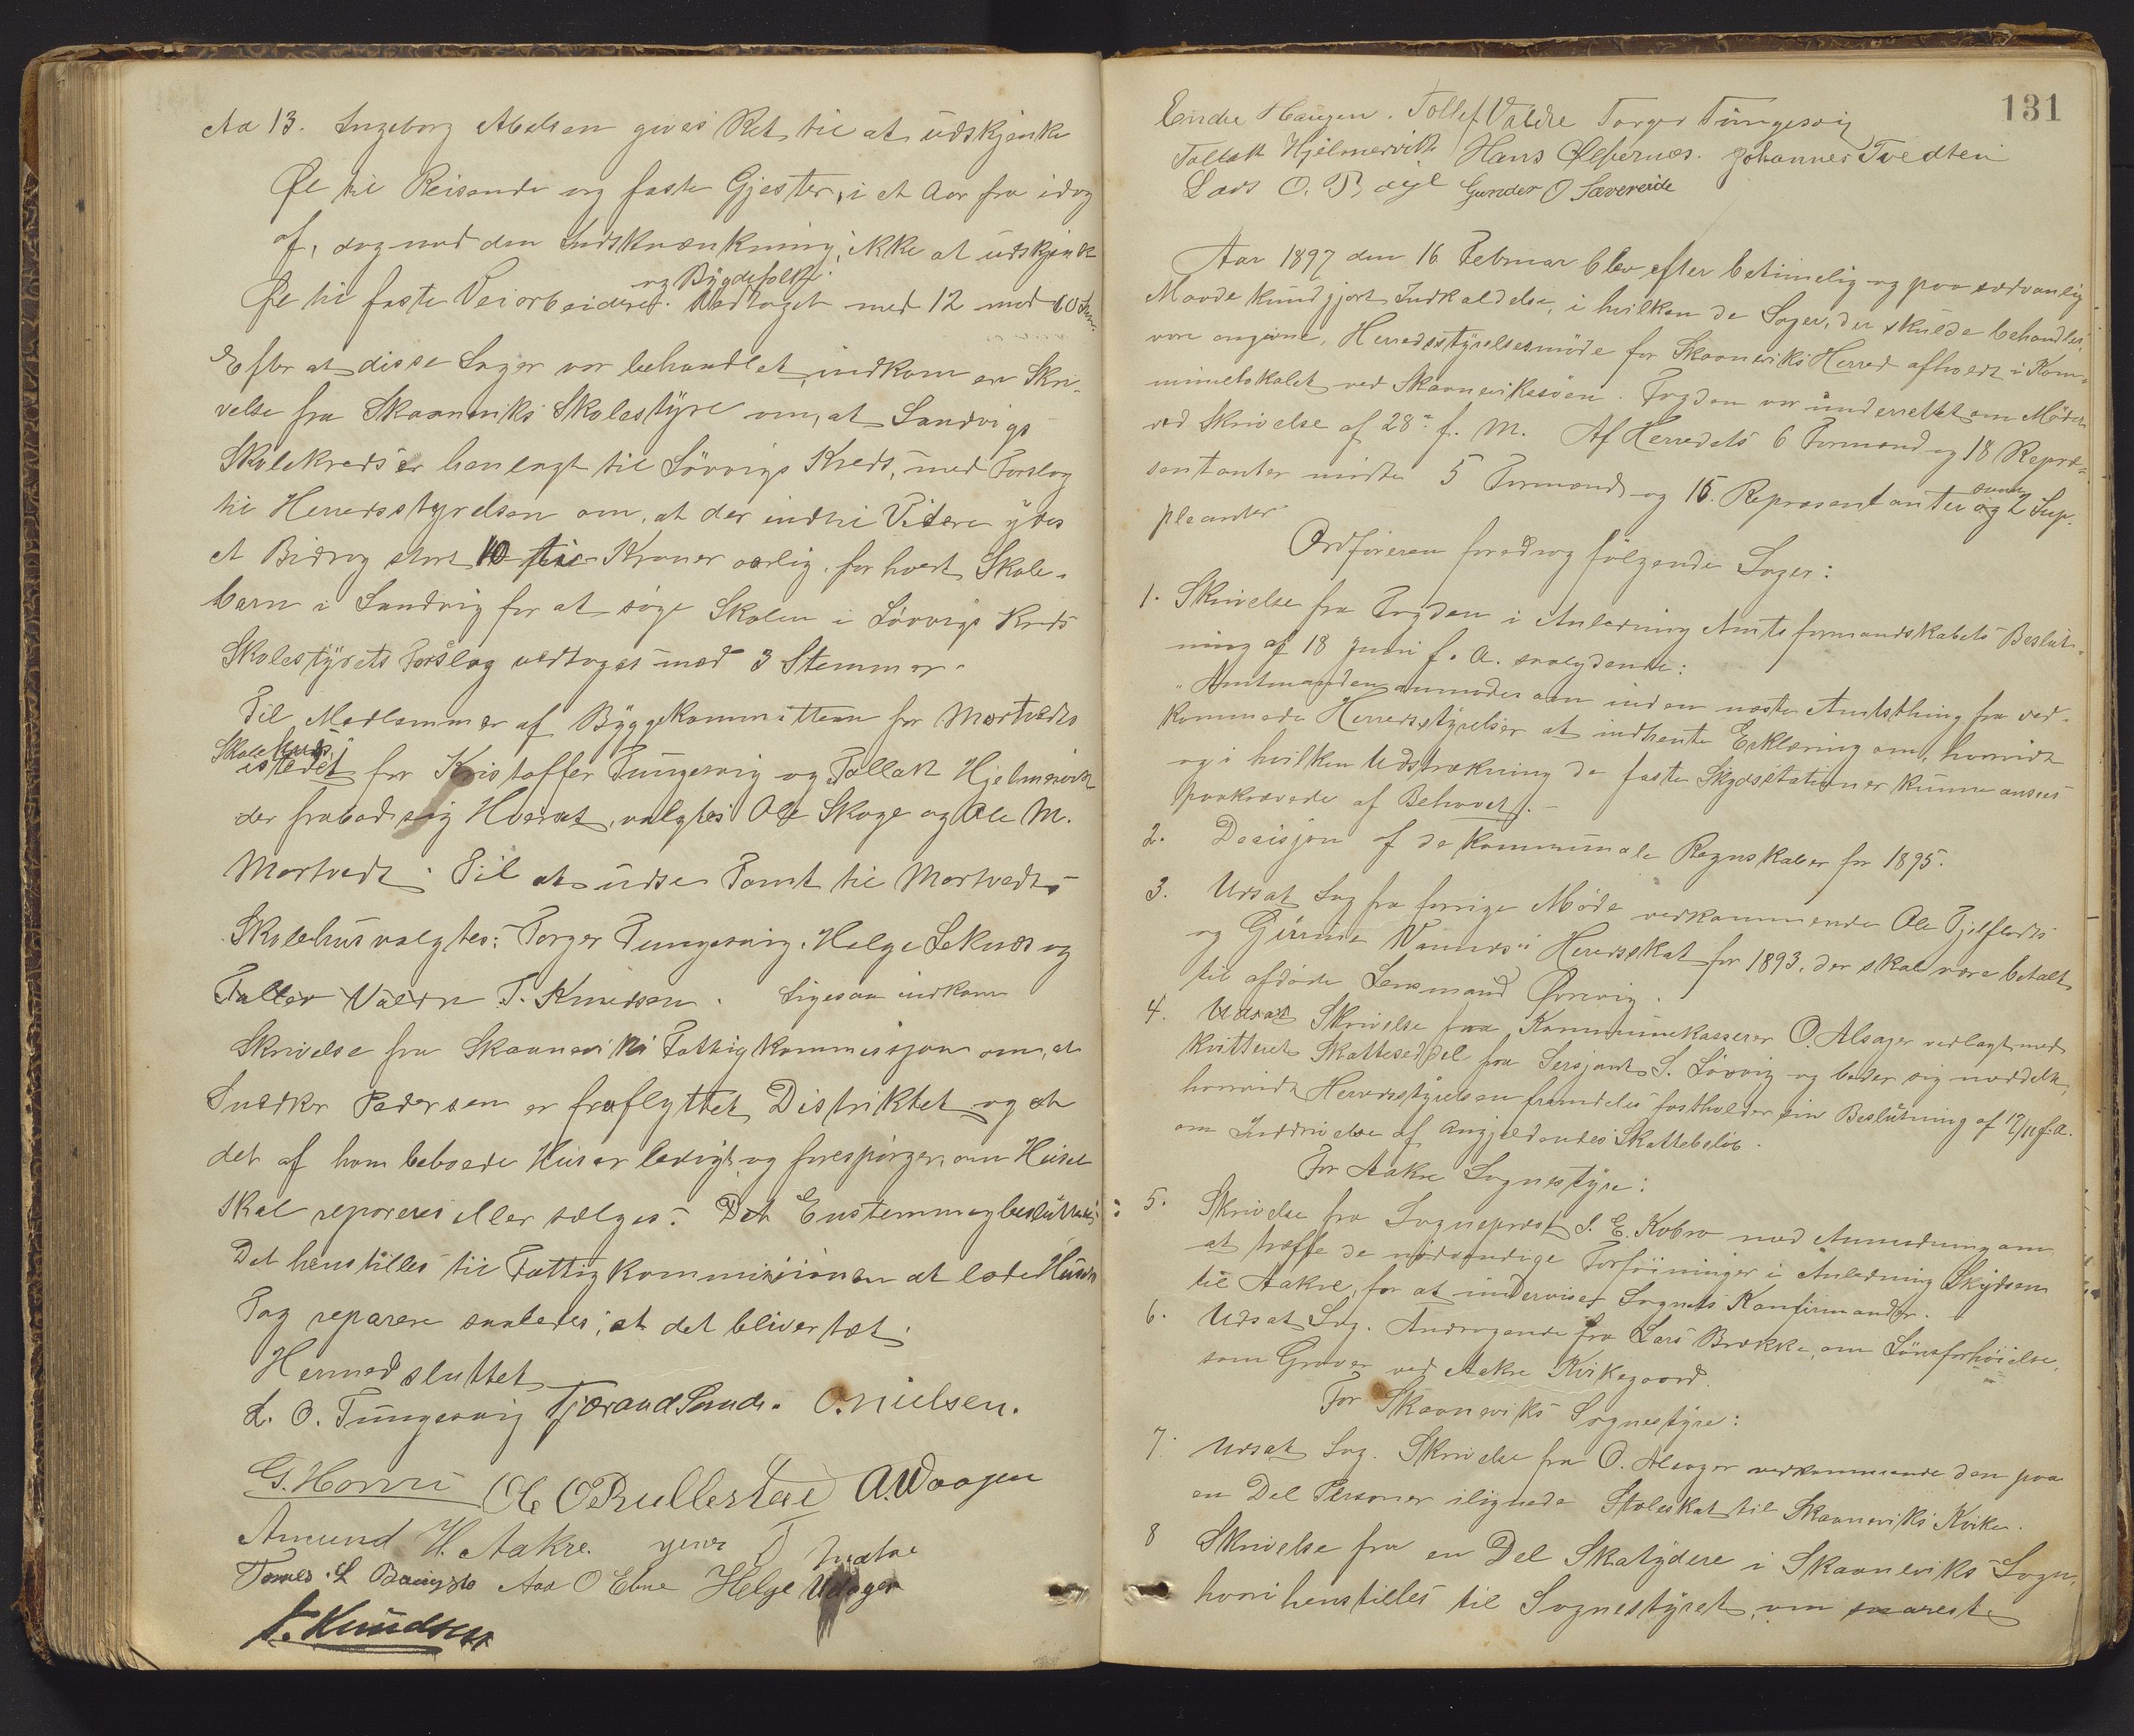 Ad 13. Ingeborg Abelsen gives Ret til at udskjenke
Øl til Reisende og faste Gjester, i et Aar fra idag
af, dog med den Indskrænkning, ikke at udskjenke
og Bygdefolk.
Øl til faste Veiarbeidere. Vedtaget med 12 mod 10 Stem.
Efter at disse Sager var behandlet, indkom en Skri-
velse fra Skaaneviks Skolestyre om, at Sandvigs
Skolekreds er henlagt til Løvvigs Kreds, med Forslag
til Herredsstyrelsen om, at der indtil Videre ydes
et Bidrag stort 10 tie Kroner aarlig for hvert Skole-
barn i Sandvig for at søge Skolen i Løvvigs Kreds
Skolestyrets Forslag vedtoges mod 3 Stemmer.
Til Medlemmer af Byggekommitteen for Mortveds
Skolehus,
istedet for Kristoffer Tungesvig og Tollak Hjelmervik
der frabad sig Hvervet, valgtes Ole Skoge og Ole M.
Mortvedt. Til at udse Tomt til Mortvedts
Skolehus valgtes: Torger Tungesvig. Helge Leknes og
Tollev Valdre T. Knudsen. Ligesaa indkom
Skrivelse fra Skaaneviks Fattigkommissjon om, at
Snedker Pedersen er fraflyttet Distriktet og at
det af ham beboede Hus er ledigt og forespørger, om Huset
skal reparerer eller sælges. Det Enstemmig besluttedes:
Det henstilles til Fattigkommissionen at lade Husets
Tag reparere saaledes, at det bliver tæt.
Hermed sluttet
L. O. Tungesvig Tjerand Sande. O. Nielsen.
G. Horvei Ole O Rullestad A. Waagen
Amund H. Aakre. Jens J Matre
Tomes. L Baugsto Aad O Ebne Helge Udager
T. Knudsen
131
Endre Haugen. Tollef Valdre Torger Tungesvig
Tollak Hjelmervik Hans Ølfernæs. Johannes Tvedten
Lars O. Bøyl Gunder O Sævereide
Aar 1897 den 16 Februar blev efter betimelig og paa sædvanlig
Maade kundgjort Indkaldelse, i hvilken de Sager, der skulde behandles,
vare angivne, Herredsstyrelsesmøde for Skaaneviks Herred afholdt i Kom-
munelokalet ved Skaanevikssøen. Fogden var underrettet om Mødet
ved Skrivelse af 28de f. M. Af Herredets 6 Formænd og 18 Repræ-
sentanter mødte 5 Formænd og 15. Repræsentanter og 2 Sup-
samt
pleanter.
Ordføreren foredrog følgende Sager:
1. Skrivelse fra Fogden i Anledning Amtsformandskabets Beslut-
ning af 18 Juni f. A. saalydende:
"Amtmanden anmodes om inden næste Amtsthing fra ved-
kommende Herredsstyrelser at indhente Erklæring om, hvorvidt
og i hvilken Udstrækning de faste Skydsstationer kunne ansees
paakrævede af Behovet". -
2. Decisjon af de kommunale Regnskaber for 1895.
3. Udsat Sag fra forrige Møde vedkommende Ole Fjelflaats
og Gunnar Vannæs's Herredsskat for 1893, der skal være betalt
til afdøde Lensmand Øvrevig.
4. Udsat Skrivelse fra Kommunekasserer O. Alsager vedlagt med
kvitteret Skatteseddel fra Sersjant S. Løvvig og beder sig meddelt,
hvorvidt Herredsstyrelsen fremdeles fastholder sin Beslutning af 17/11 f. A.
om Inddrivelse af angjeldendes Skattebeløb.
For Aakre Sognestyre:
5. Skrivelse fra Sogneprest J. E. Kobro med Anmodning om
at træffe de nødvendige Forføininger i Anledning Skydsen
til Aakre, for at undervise Sognets Konfirmander.
6. Udsat Sag. Andragende fra Lars Brekke, om Lønsforhøielse,
som Graver ved Aakre Kirkegaard.
For Skaaneviks Sognestyre:
7. Udsat Sag. Skrivelse fra O. Alsager vedkommende den paa
en Del Personer ilignede Stoleskat til Skaaneviks Kirke.
8 Skrivelse fra en Del Skatydere i Skaaneviks Sogn,
hvori henstilles til Sognestyret, om snarest